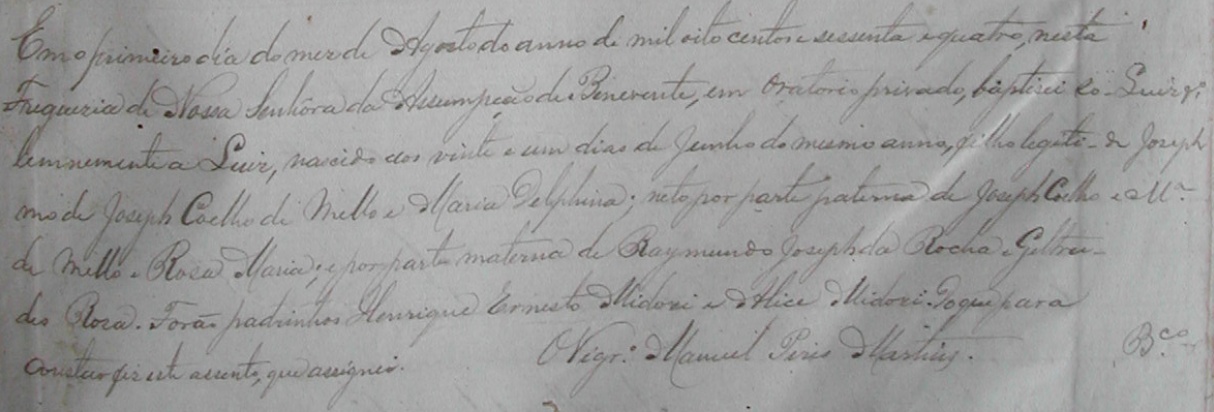 Em o primeiro dia do mez de Agosto do anno de mil oito centos e sessenta e quatro, nesta
Freguezia de Nossa Senhôra da Assumpção de Benevente, em Oratorio privado, baptisei so- Luiz fº
lemnemente a Luiz, nascido aos vinte e um dias de Junho do mesmo anno, filho legiti- de Joseph
mo de Joseph Coelho de Mello e Maria Delphina; neto por parte paterna de Joseph Coelho e Mª
de Mello e Rosa Maria; e por parte materna de Raymundo Joseph da Rocha e Geltru-
des Rosa. Forão padrinhos Henrique Ernesto Midosi e Alice Midosi. Do que para
constar fiz este assento, que assignei. O Vigrº Manuel Pires Martins. Bco